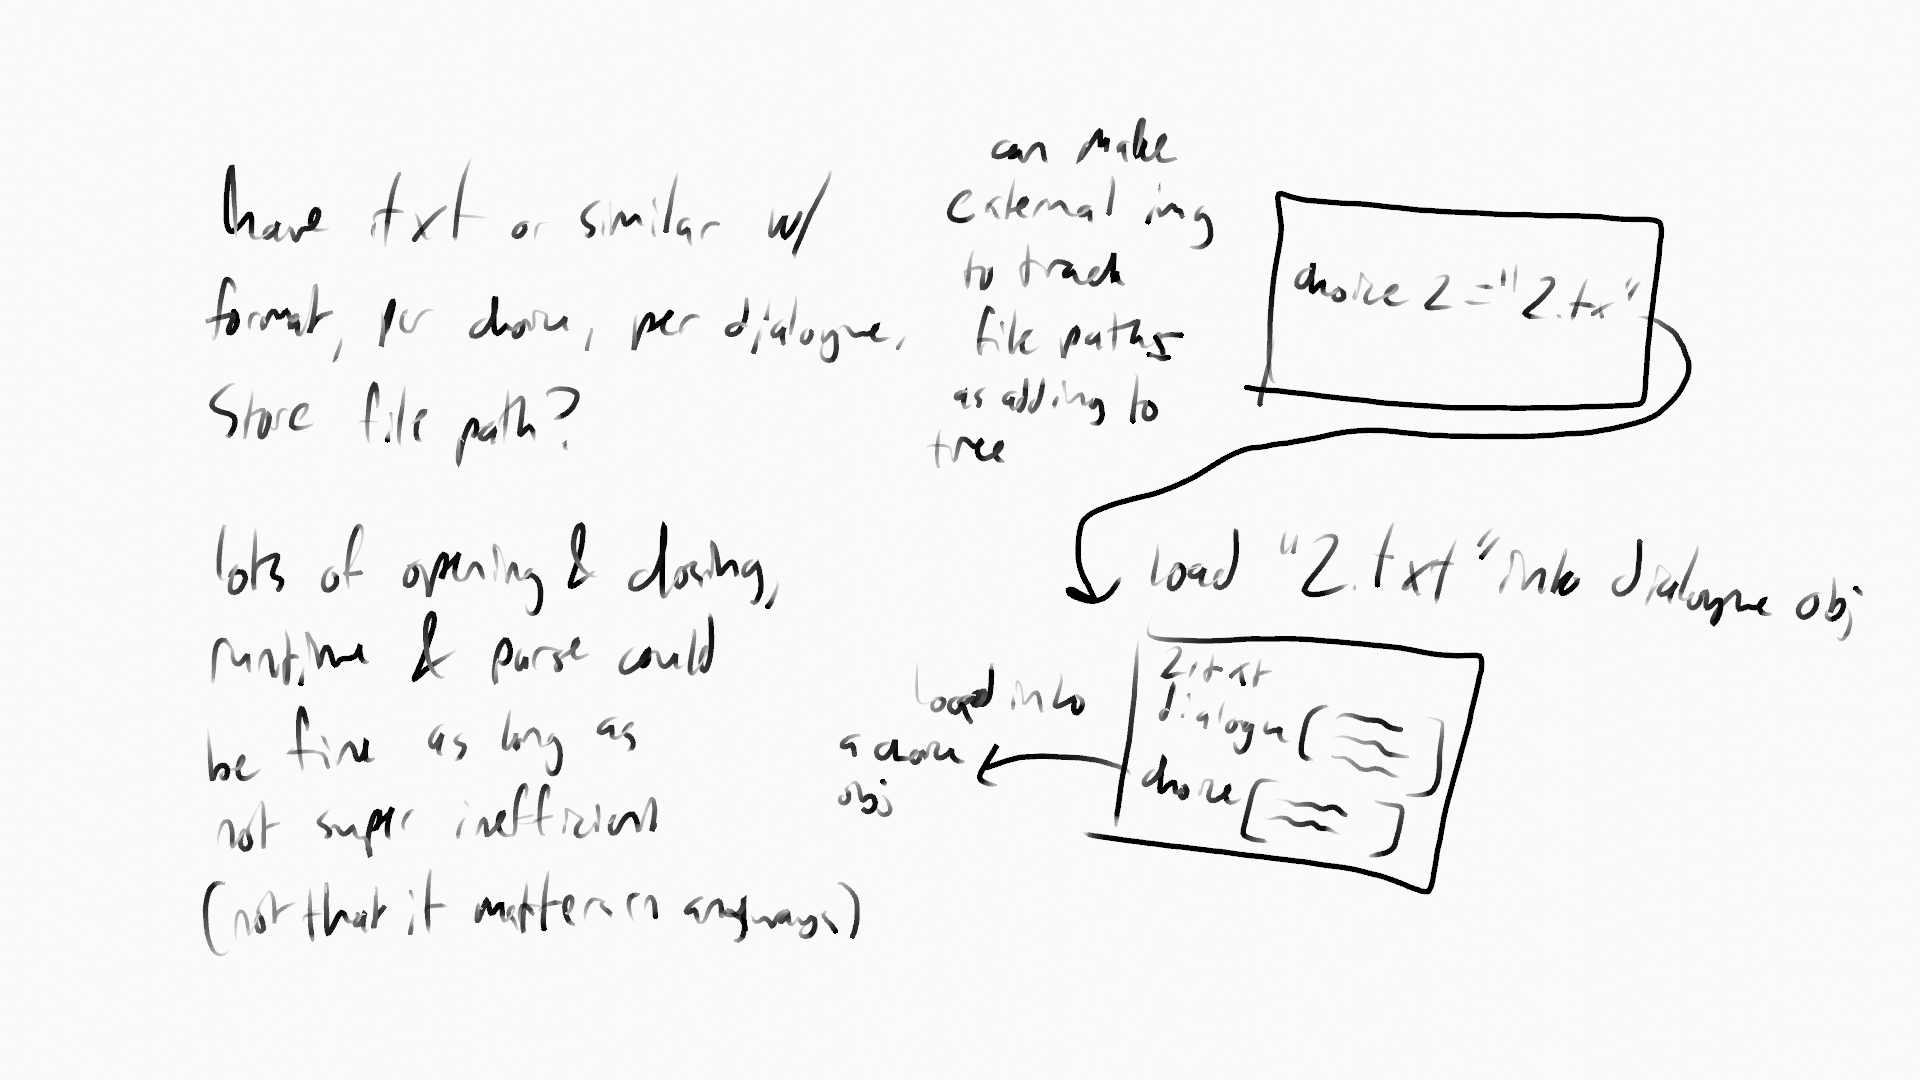 have txt or similar w/
format, per choice, per dialogue.
Store file path?
lots of opening & closing,
runtime & parse could
be fine as long as
not super inefficient
(not that it matters anyways)
can make
external img
to track
file paths
as adding to
tree
choice 2 = "2.tx"
load "2.txt" into dialogue obj
2.txt
dialogue [
]
choice [ ]
load into
a choice
obj